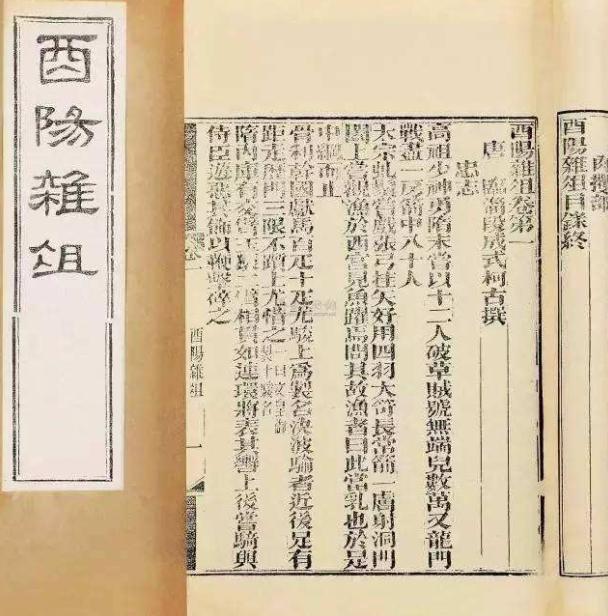 酉陽雜俎
肉攫部
酉陽雜俎目錄終
酉陽雜俎卷第一
唐 臨淄段成式柯古撰
忠志
高祖少神勇隋末嘗以十二人破草賊號無端兒數萬又龍門
戰盡一房箭中八十人
太宗虬鬚嘗戲張弓挂矢好用四羽大笴長常箭一膚射洞門
闔上嘗觀漁於西宮見魚躍焉問其故漁者曰此當乳也於是
中網而止
骨利幹國獻馬百疋十疋尤駿上為製名決波騟者近後足有
距走歷門三限不躓上尤惜之
隋內庫有交臂玉猿 臂相貫如連環將表其轡上後嘗騎與
侍臣遊惡其飾以鞭擊碎之
卷一
酉陽雜俎
一